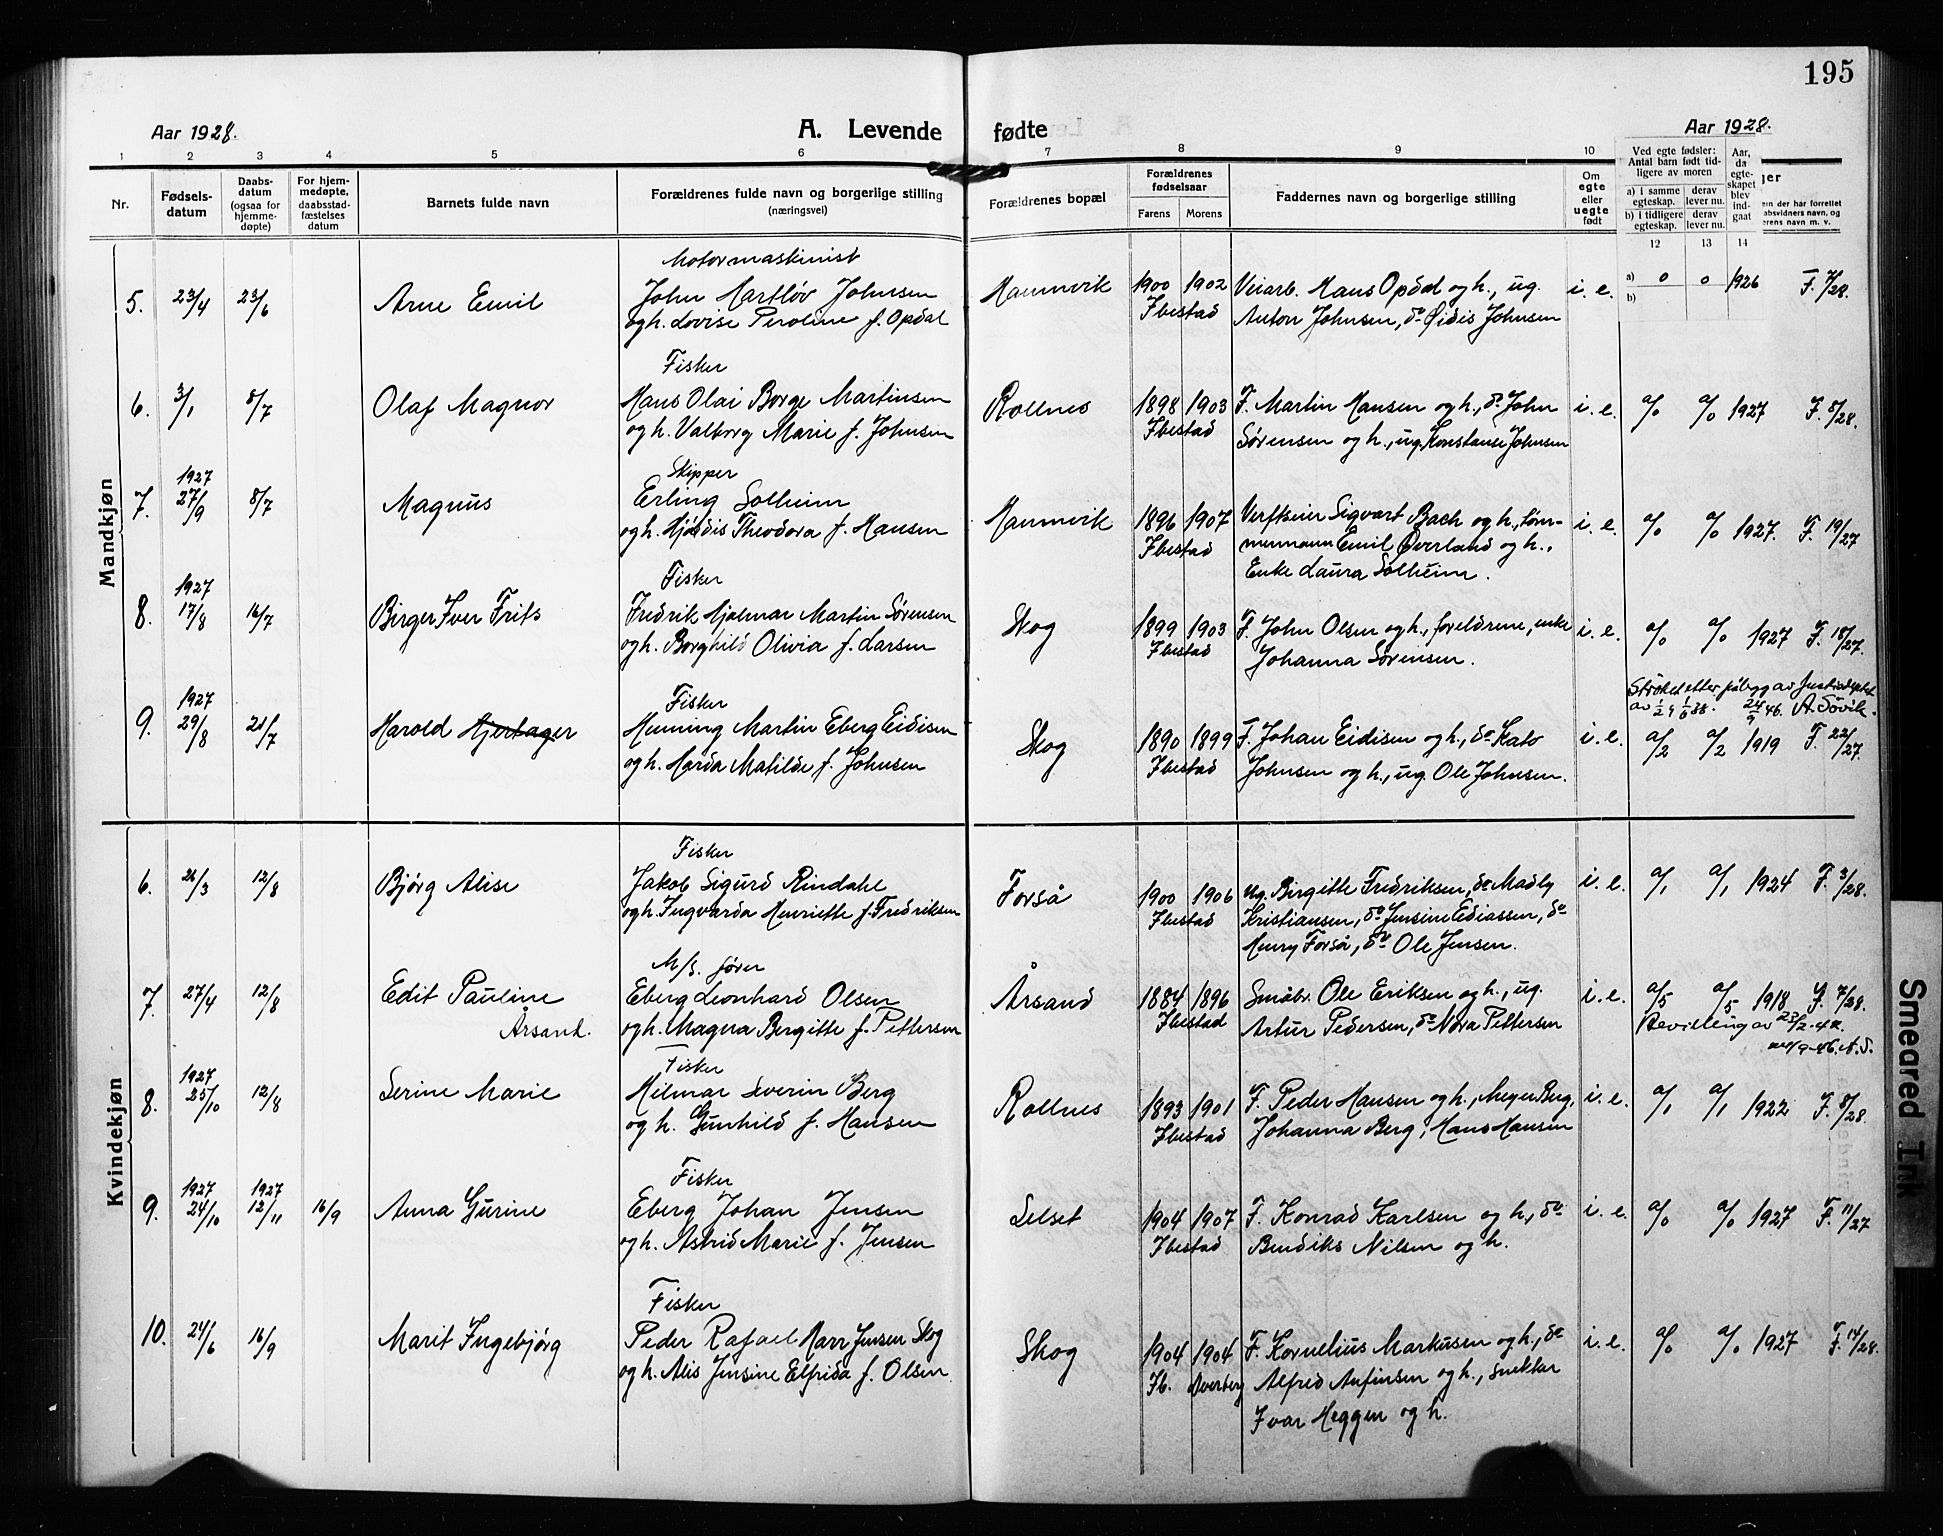 195
Aar 1928.
A. Levende fødte
Aar 1928.
1 2 3 4 5 6 7 8 9 10
Nr.
Fødsels-
datum
Daabs-
datum
(ogsaa for
hjemme-
døpte)
For hjem-
medøpte,
daabsstad-
fæstelses
datum
Barnets fulde navn
Forældrenes fulde navn og borgerlige stilling
(næringsvei)
Forældrenes bopæl
Forældrenes
fødselsaar
Farens Morens
Faddernes navn og borgerlige stilling
Om
egte
eller
uegte
født
Ved egte fødsler:
Antal barn født tid-
ligere av moren
a) i samme
egteskap.
derav
lever nu.
b) i tidligere
egteskap.
derav
lever nu.
Aar,
da
egte-
skapet
blev
ind-
gaat
12 13 14
Mandkjøn
5. 23/4 23/6 Arne Emil
Motormaskinist
John Hartløv Johnsen
og h. Lovise Peroline f. Opdal
Hamnvik
1900 1902
Ibestad
Veiarb. Hans Opdal og h., ug.
Anton Johnsen, do Øidis Johnsen
i. e. a) 0 0 1926
b)
6. 3/1 8/7 Olaf Magnor
Fisker
Hans Olai Borge Martinsen
og h. Valborg Marie f. Johnsen
Rollnes
1898 1903
Ibestad
F. Martin Hansen og h., do John
Sørensen og h., ug. Konstanse Johnsen
i. e. a/0 a/0 1927 F. 8/28.
7. 1927 27/9 8/7 Magnus
Skipper
Erling Solheim
og h. Hjørdis Theodora f. Hansen
Hamnvik
1896 1907
Ibestad
Verfteier Sigvart Bach og h., tøm-
mermann Emil Øverland og h.,
Enke Laura Solheim.
i. e. a/0 a/0 1927. F. 19/27
8. 1927 17/8 16/7 Birger Iver Frits
Fisker
Fredrik Hjalmar Martin Sørensen
og h. Borghild Olivia f. Larsen
Skog
1899 1903
Ibestad
F. John Olsen og h., foreldrene, enke
Johanna Sørensen.
i. e. a/0 a/0 1927 F. 18/27.
9. 1927 29/8 21/7 Harold Hjertager
Fisker
Henning Martin Eberg Eidisen
og h. Harda Matilde f. Johnsen
Skog
1890 1899
Ibestad
F. Johan Eidisen og h., do Kato
Johnsen og h., ug. Ole Johnsen.
i. e. a/2 a/2 1919 F. 22/27.
24/9 46. A. Søvik.
Kvindekjøn
6. 21/3 12/8 Bjørg Alise
Fisker
Jakob Sigurd Rindahl
og h. Ingvarda Henriette f. Fredriksen
Forså
1900 1906
Ibestad
Ug. Birgitte Fredriksen, do Madly
Kristiansen, do Jensine Ediassen, do
Henry Forså, do Ole Jensen.
i. e. a/1 a/1 1924 F. 3/28.
7. 27/4 12/8 Edit Pauline
Årsand.
M/s. fører
Eberg Leonhard Olsen
og h. Magna Bergitte f. Pettersen
Årsand
1884 1896
Ibestad
Småbr. Ole Eriksen og h., ug.
Artur Pedersen, do Nora Pettersen
i. e. a/5 a/5 1918 F. 7/28.
Bevilling av
8. 1927 25/10 12/8 Serine Marie
Fisker
Hilmar Severin Berg
og h. Gunhild f. Hansen
Rollnes
1893 1901
Ibestad
F. Peder Hansen og h., Meyer Berg,
Johanna Berg, Hans Hansen
i. e. a/1 a/1 1922 F. 8/28.
9. 1927 24/10 1927 12/11 16/9 Anna Gurine
Fisker
Eberg Johan Jensen
og h. Astrid Marie f. Jensen
Selset
1904 1907
Ibestad
F. Konrad Karlsen og h., do
Bendiks Nilsen og h.
i. e. a/0 a/0 1927 F. 11/27
10. 24/6 16/9 Marit Ingebjørg
Fisker
Peder Rafael Harr Jensen Skog
og h. Alis Jensine Elfrida f. Olsen
Skog
1904 1904
Ib.
F. Kornelius Markusen og h., do
Alfred Anfinsen og h., snekker
Ivar Heggen og h.
i. e. a/0 a/0 1927 F. 14/28.
Smeared Ink